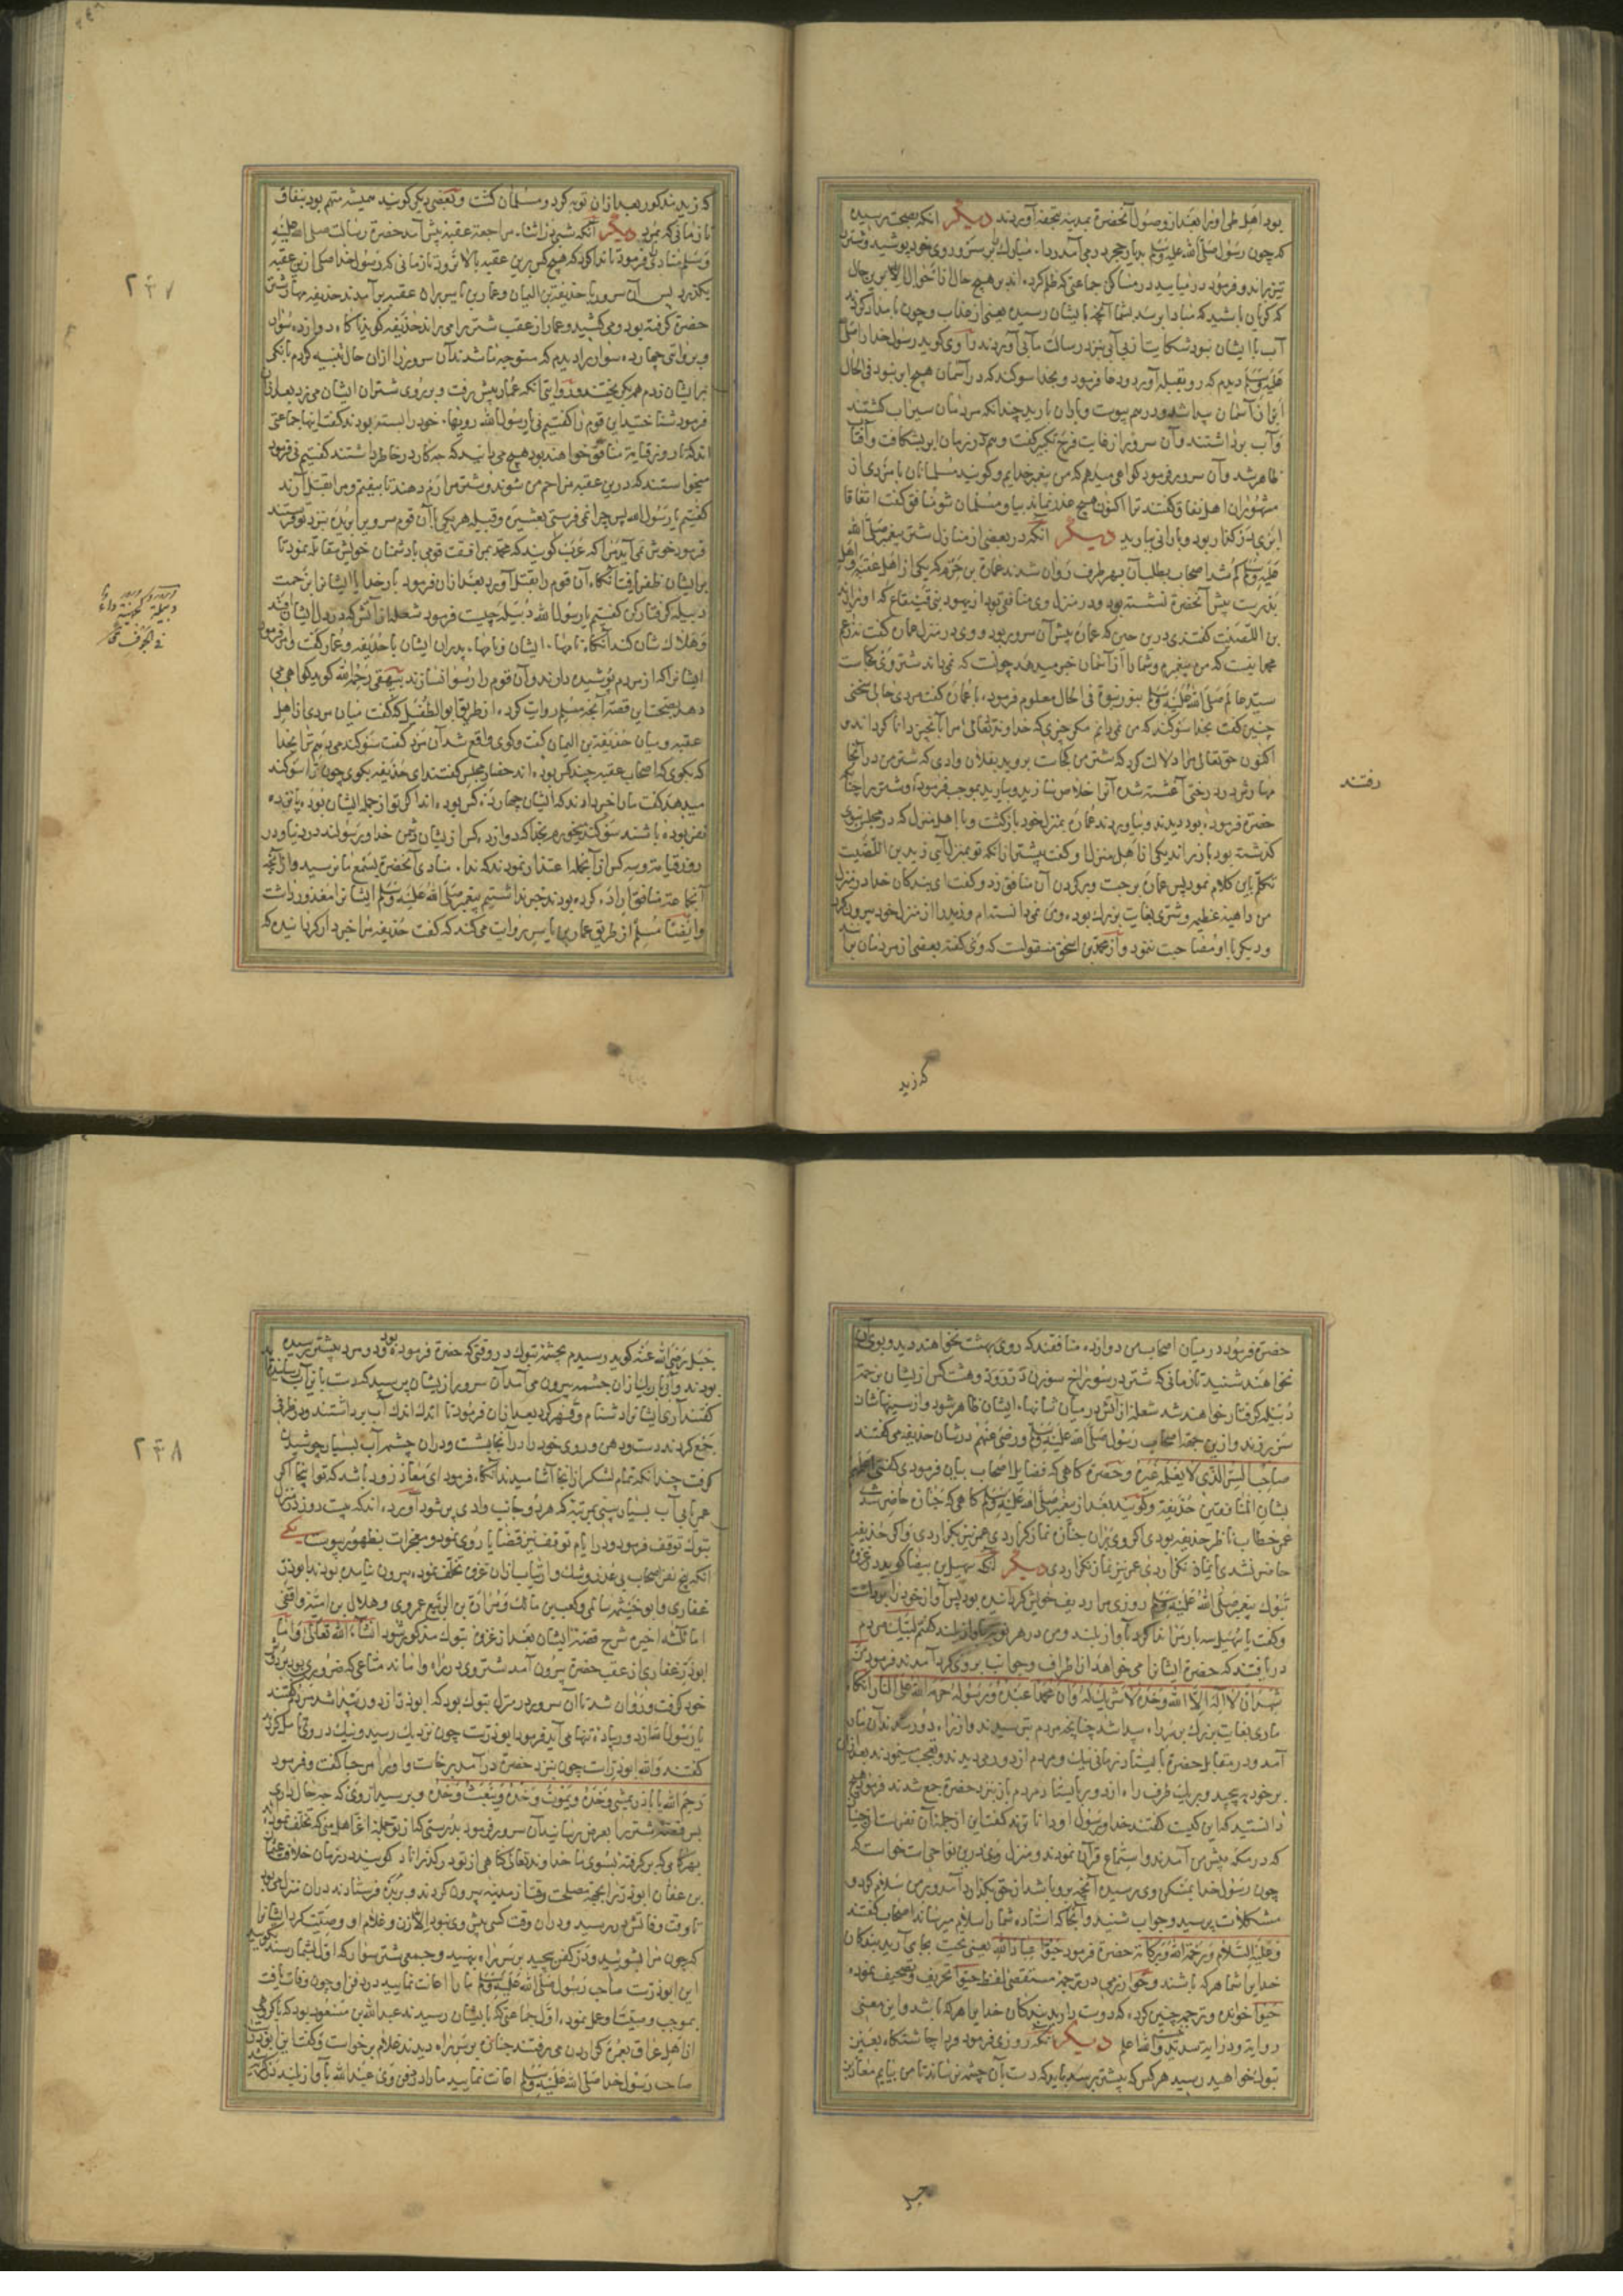 بود اهل طی او را بعد از وصول آنحضرة بمدینه بتحفه آوردند دیگر آنکه بصحت رسیده
که چون رسول صلی الله علیه وسلم بدیار حجر در می آمد ردا مبارک بر سر و روی خود پوشید و شتر
تیز براند و فرمود در میایید در مساکن جماعتی که ظلم کرده اند بر هیچ حال
که گریان باشید که مبادا برسد بشما آنچه بایشان رسیده یعنی از عذاب و چون بامداد کردند
آب با ایشان نبود شکایت از بی آبی نزد رسالت مآبی آوردند راوی کوید رسول خدا را صلی
علیه وسلم دیدم که رو بقبله آورد و دعا فرمود و بخدا سوکند که در آسمان هیچ ابر نبود فی الحال
ابری از آسمان پیدا شد و در هم پیوست و باران بارید چندانکه مردمان سیراب کشتند
و آب برداشتند و آن سرور از غایت فرح تکبیر کفت و هم در زمان ابر بشکافت و آفتاب
ظاهر شد و آن سرور فرمود کواهی میدهم که من پیغمبر خدایم و کویند مسلمانان با مردی از
مشهوران اهل نفاق کفتند ترا اکنون هیچ عذر نماند بیا و مسلمان شو منافق کفت اتفاقا
ابری در کذار بود و بارانی ببارید دیگر آنکه در بعضی از منازل شتر پیغمبر صلی الله
علیه وسلم کم شد اصحاب بطلب آن بهر طرف روان شدند عمارة بن حزم که یکی از اهل عقبه و اهل
بدرست پیش آنحضرة نشسته بود و در منزل وی منافقی بود از یهود بنی قینقاع که او را زید
بن اللصیت کفتندی در این حین که عماره پیش آن سرور بود و وی در منزل عماره کفت
محمد نیست که من پیغمبرم و شما را از آسمان خبر میدهد چونست که نمی داند شتر وی کجاست
سید عالم صلی الله علیه وسلم بنور نبوة فی الحال معلوم فرمود با عماره کفت مردی حالی سخنی
چنین کفت بخدا سوکند که من نمی دانم مکر چیزی که خداوند تعالی مرا بآن چیز دانا کرداند و
اکنون حق تعالی مرا دلالت کرد که شتر من کجاست بروید بفلان وادی که شتر من در آنجا
مهارش در درختی شده آنرا خلاص سازید و بیارید بموجب فرموده و شتر را چنان
حضرة فرموده بود دیدند و بیاوردند عماره بمنزل خود بازکشت و با اهل منزل که در مجلس نبوی
کذشته بود باز براند یکی از اهل منزل او کفت پیشتر از آنکه تو بمنزل آیی زید بن اللصیت
تکلم باین کلام نمود پس عماره برجست و بر کردن آن منافق زد و کفت ای بندکان خدا در منزل
من داهیه عظیم و شری بغایت بزرک بوده و من نمی دانستم و زید را از منزل خود بیرون کرد
و دیگر با او مصاحبت ننمود و از محمد بن اسحق منقولست که وی کفته بعضی از مردمان برآنند
رفتند
که زید
که زید مذکور بعد از آن توبه کرد و مسلمان کشت و بعضی دیکر کویند همیشه متهم بود بنفاق
تا زمانی که بمرد دیگر آنکه شبی در اثنا مراجعة عقبه پیش آمد حضرة رسالت صلی الله علیه
وسلم منادی فرمود تا ندا کرد که هیچ کس برین عقبه بالا نرود تا زمانی که رسول خدا صلعم ازین عقبه
بکذرد پس آن سرور با حذیفة بن الیمان و عمار بن یاسر براه عقبه بر آمدند حذیفه مهار شتر
حضرة کرفته بود و می کشید و عمار از عقب شتر را می راند حذیفه کوید ناکاه دوازده سوار
و بروایتی چهارده سوار دیدم که متوجه ما شدند آن سرور را از آن حال تنبیه کردم بانکی
بر ایشان زدم همه بکریختند و روایتی آنکه عمار پیش رفت و بر روی شتران ایشان می زد بعد از آن
فرمود شناختید این قوم را کفتیم نی یا رسول الله رویها خود را بسته بودند کفت اینها جماعتی
اند که تا روز قیامة منافق خواهند بود هیچ می دانید که چه کار در خاطر داشتند کفتیم نی فرمود
میخواستند که درین عقبه مزاحم من شوند و شتر مرا رم دهند تا بیفتم و مرا بقتل آرند
کفتیم یا رسول الله پس چرا نمی فرستی بعشیرت و قبیله هر یکی تا آن قوم سر ویرا بریده نزد تو فرستند
فرمود خوش نمی آید مرا که عرب کویند که محمد بمرافقت قومی با دشمنان خویش مقاتله نمود تا
برایشان ظفر یافت آنکاه آن قوم را بقتل آورد بعد از آن فرمود بار خدایا ایشانرا بزحمت
دبیله کرفتار کن کفتیم یا رسول الله دبیله چیست فرمود شعله از آتش که در دل ایشان افتد
و هلاک شان کند آنکاه نامها ایشان و نامها پدران ایشان با حذیفه و عمار کفت و فرمود
ایشانرا که از مردم پوشیده دارند و آن قوم را رسوا نسازند بیهقی رحمه الله کوید کواهی می
دهد بصحت این قصه آنچه مسلم روایت کرده از طریق ابو الطفیل که کفت میان مردی از اهل
عقبه و میان حذیفة بن الیمان کفت و کوی واقع شد آن مرد کفت سوکند می دهم ترا بخدا
که بکوی که اصحاب عقبه چند کس بوده اند حضار مجلس کفتند ای حذیفه بکوی چون ترا سوکند
میدهد کفت ما را خبر دادند که ایشان چهارده کس بوده اند اکر تو از جمله ایشان بوده پانزده
نفر بوده باشند سوکند میخورم بخدا که دوازده کس از ایشان دشمن خدا و رسولند در دنیا و در
روز قیامة و سه کس از آنجمله اعتذار نمودند که ندا منادی آنحضرة بسمع ما نرسید و از آنچه
آن جماعة منافق اراده کرده بودند خبر نداشتیم پیغمبر صلی الله علیه وسلم ایشانرا معذور داشت
و ایضا مسلم از طریق عمار بن یاسر روایت می کند که کفت حذیفه مرا خبردار کردانیده که
۲۴۷
حضرة فرمود در میان اصحاب من دوازده منافقند که روی بهشت نخواهند دید و بوی آن
نخواهند شنید تا زمانی که شتر در سوراخ سوزن در رود و هشت کس از ایشان بزحمة
دبیله کرفتار خواهند شد شعله از آتش در میان شانها ایشان ظاهر شود و از سینهاشان
سر برزند و ازین جهة اصحاب رسول صلی الله علیه وسلم ورضی عنهم در شان حذیفه می کفتند
صاحب السر الذی لا یعلمه غیره و حضرة کاهی که فضایل اصحاب بیان فرمودی کفتی اعلم
بشأن المنافقین حذیفة و کویند بعد از پیغمبر صلی الله علیه وسلم کاهی که جنازه حاضر شدی
عمر خطاب ناظر حذیفه بودی اکر وی بران جنازه نماز کزاردی عمر نیز بکزاردی و اکر حذیفه
حاضر نشدی یا نماز نکزاردی عمر نیز نماز نکزاردی دیگر آنکه سهیل بن بیضا کوید در غزوه
تبوک پیغمبر صلی الله علیه وسلم روزی مرا ردیف خویش کردانیده بود پس آواز خود را برداشت
و کفت یا سهیل سه بار مرا ندا کرد بآواز بلند و من در هر نوبة بآواز بلند کفتم لبیک مردم
دریافتند که حضرة ایشانرا می خواهد از اطراف و جوانب بر وی کرد آمدند فرمود من
شهد ان لا اله الا الله وحده لا شریک له و ان محمدا عبده و رسوله حرمه الله علی النار آنکاه
ماری بغایت بزرک بر سر راه پیدا شد چنانچه مردم بترسیدند و از راه دور شدند آن مار
آمد و در مقابل حضرة بایستاد زمانی نیک و مردم از دور می دیدند و تعجب مینمودند بعد از آن
برخود بپیچید و بر یک طرف راه از دور بایستاد مردم باز بنزد حضرة جمع شدند فرمود هیچ
دانستید که این کیست کفتند خدا و رسول او داناترند کفت این از جمله آن نفرست از جن
که در مکه پیش من آمدند و استماع قرآن نمودند و منزل وی درین نواحیست خواست که
چون رسول خدا بمسکن وی رسیده آنچه برو باشد از حق بکذارد آمد و بر من سلام کرد و
مشکلات پرسید و جواب شنید و آنجا که استاده شما را سلام میرساند اصحاب کفتند
وعلیه السلام ورحمة الله وبرکاته حضرة فرمود حیوا عباد الله یعنی تحیت بجای آرید بندکان
خدایرا هر که باشند و خوارزمی در ترجمه مستقصی لفظ حیوا تحریف و تصحیف نموده
حبوا خوانده و ترجمه چنین کرده که دوست دارید بندکان خدایرا هر که باشد و این معنی
والله اعلم دیگر آنکه روزی فرمود فردا چاشتکاه بعین
تبوک خواهید رسید هر کس که پیشتر برسد باید که دست بآن چشمه نرساند تا من بیایم معاذ بن
جبل
جبل رضی الله عنه کوید رسیدم بچشمه تبوک در وقتی که حضرة فرموده بود و دو مرد پیشتر رسیده
بودند و آن سرور از ایشان پرسید که دست باین آب رسانیدید
کفتند آری ایشانرا دشنام و قهر کرد بعد از آن فرمود تا اندک اندک آب برداشتند و در ظرفی
جمع کردند دست و دهن و روی خود را در آنجا بشست و در آن چشمه آب بسیار جوشیدن
کرفت چندانکه تمام لشکر از آنجا آشامیدند آنکاه فرمود ای معاذ زود باشد که تو اینجا اکر
عمر یابی آب بسیار بینی بمرتبه که هر دو جانب وادی پر شود آورده اند که بیست روز در منزل
تبوک توقف فرمود و در ایام توقف نیز قضایا روی نمود و معجزات بظهور پیوست یکی
آنکه پنج نفر اصحاب بی عذر و شک و ارتیاب از آن غزوه تخلف نموده بیرون نیامده بودند ابوذر
غفاری و ابو خیثمه سالمی و کعب بن مالک و مرارة بن الربیع عمروی و هلال بن امیه واقفی
اما ثلثه اخیره شرح قصه ایشان بعد از غزوه تبوک مذکور شود انشاء الله تعالی و اما
ابوذر غفاری از عقب حضرة بیرون آمد شتر وی در راه واماند متاعی که ضروری بود بر پشت
خود کرفت و روان شد تا آن سرور در منزل تبوک بود که ابوذر از دور پیدا شد مردم کفتند
یا رسول الله مردی پیاده تنها می آید فرمود ابوذرست چون نزدیک رسید و نیک در وی تامل کردند
کفتند والله ابوذر است چون بنزد حضرة در آمد برخاست و او را مرحبا کفت و فرمود
رحم الله ابا ذر یمشی وحده ویموت وحده ویبعث وحده و پرسید از وی که چه حال داری
پس قصه شتر را بعرض رسانید آن سرور فرمود بدرستی که از تو جمله اعز اهل منی که تخلف نموده
بهر کامی که برکرفته بسوی ما خداوند تعالی کناهی از تو درکذراناد کویند در زمان خلافت عثمان
بن عفان ابوذر را بجهة مصلحت وقت از مدینه بیرون کردند و بربذه فرستادند در آن منزل می بود
تا وقت وفاتش در رسید و در آن وقت کسی پیش وی نبود الا زن و غلام او وصیت کرد ایشانرا
که چون مرا بشویید و در کفن پیچید بر سر راه بنهید و جمعی شتر سوار که اول بشما رسند بکویید
این ابوذرست صاحب رسول صلی الله علیه وسلم ما را اعانت نمایید در دفن او چون وفات یافت
بموجب وصیتش عمل نمودند اول جماعتی که بایشان رسیدند عبد الله بن مسعود بود که با کروهی
از اهل عراق بعمره کزاردن می رفتند جنازه بر سر راه دیدند غلام برخواست و کفت این ابوذر
صاحب رسول خدا صلی الله علیه وسلم اعانت نمایید ما را در دفن وی عبد الله بآواز بلند در کریه شد
۲۴۸